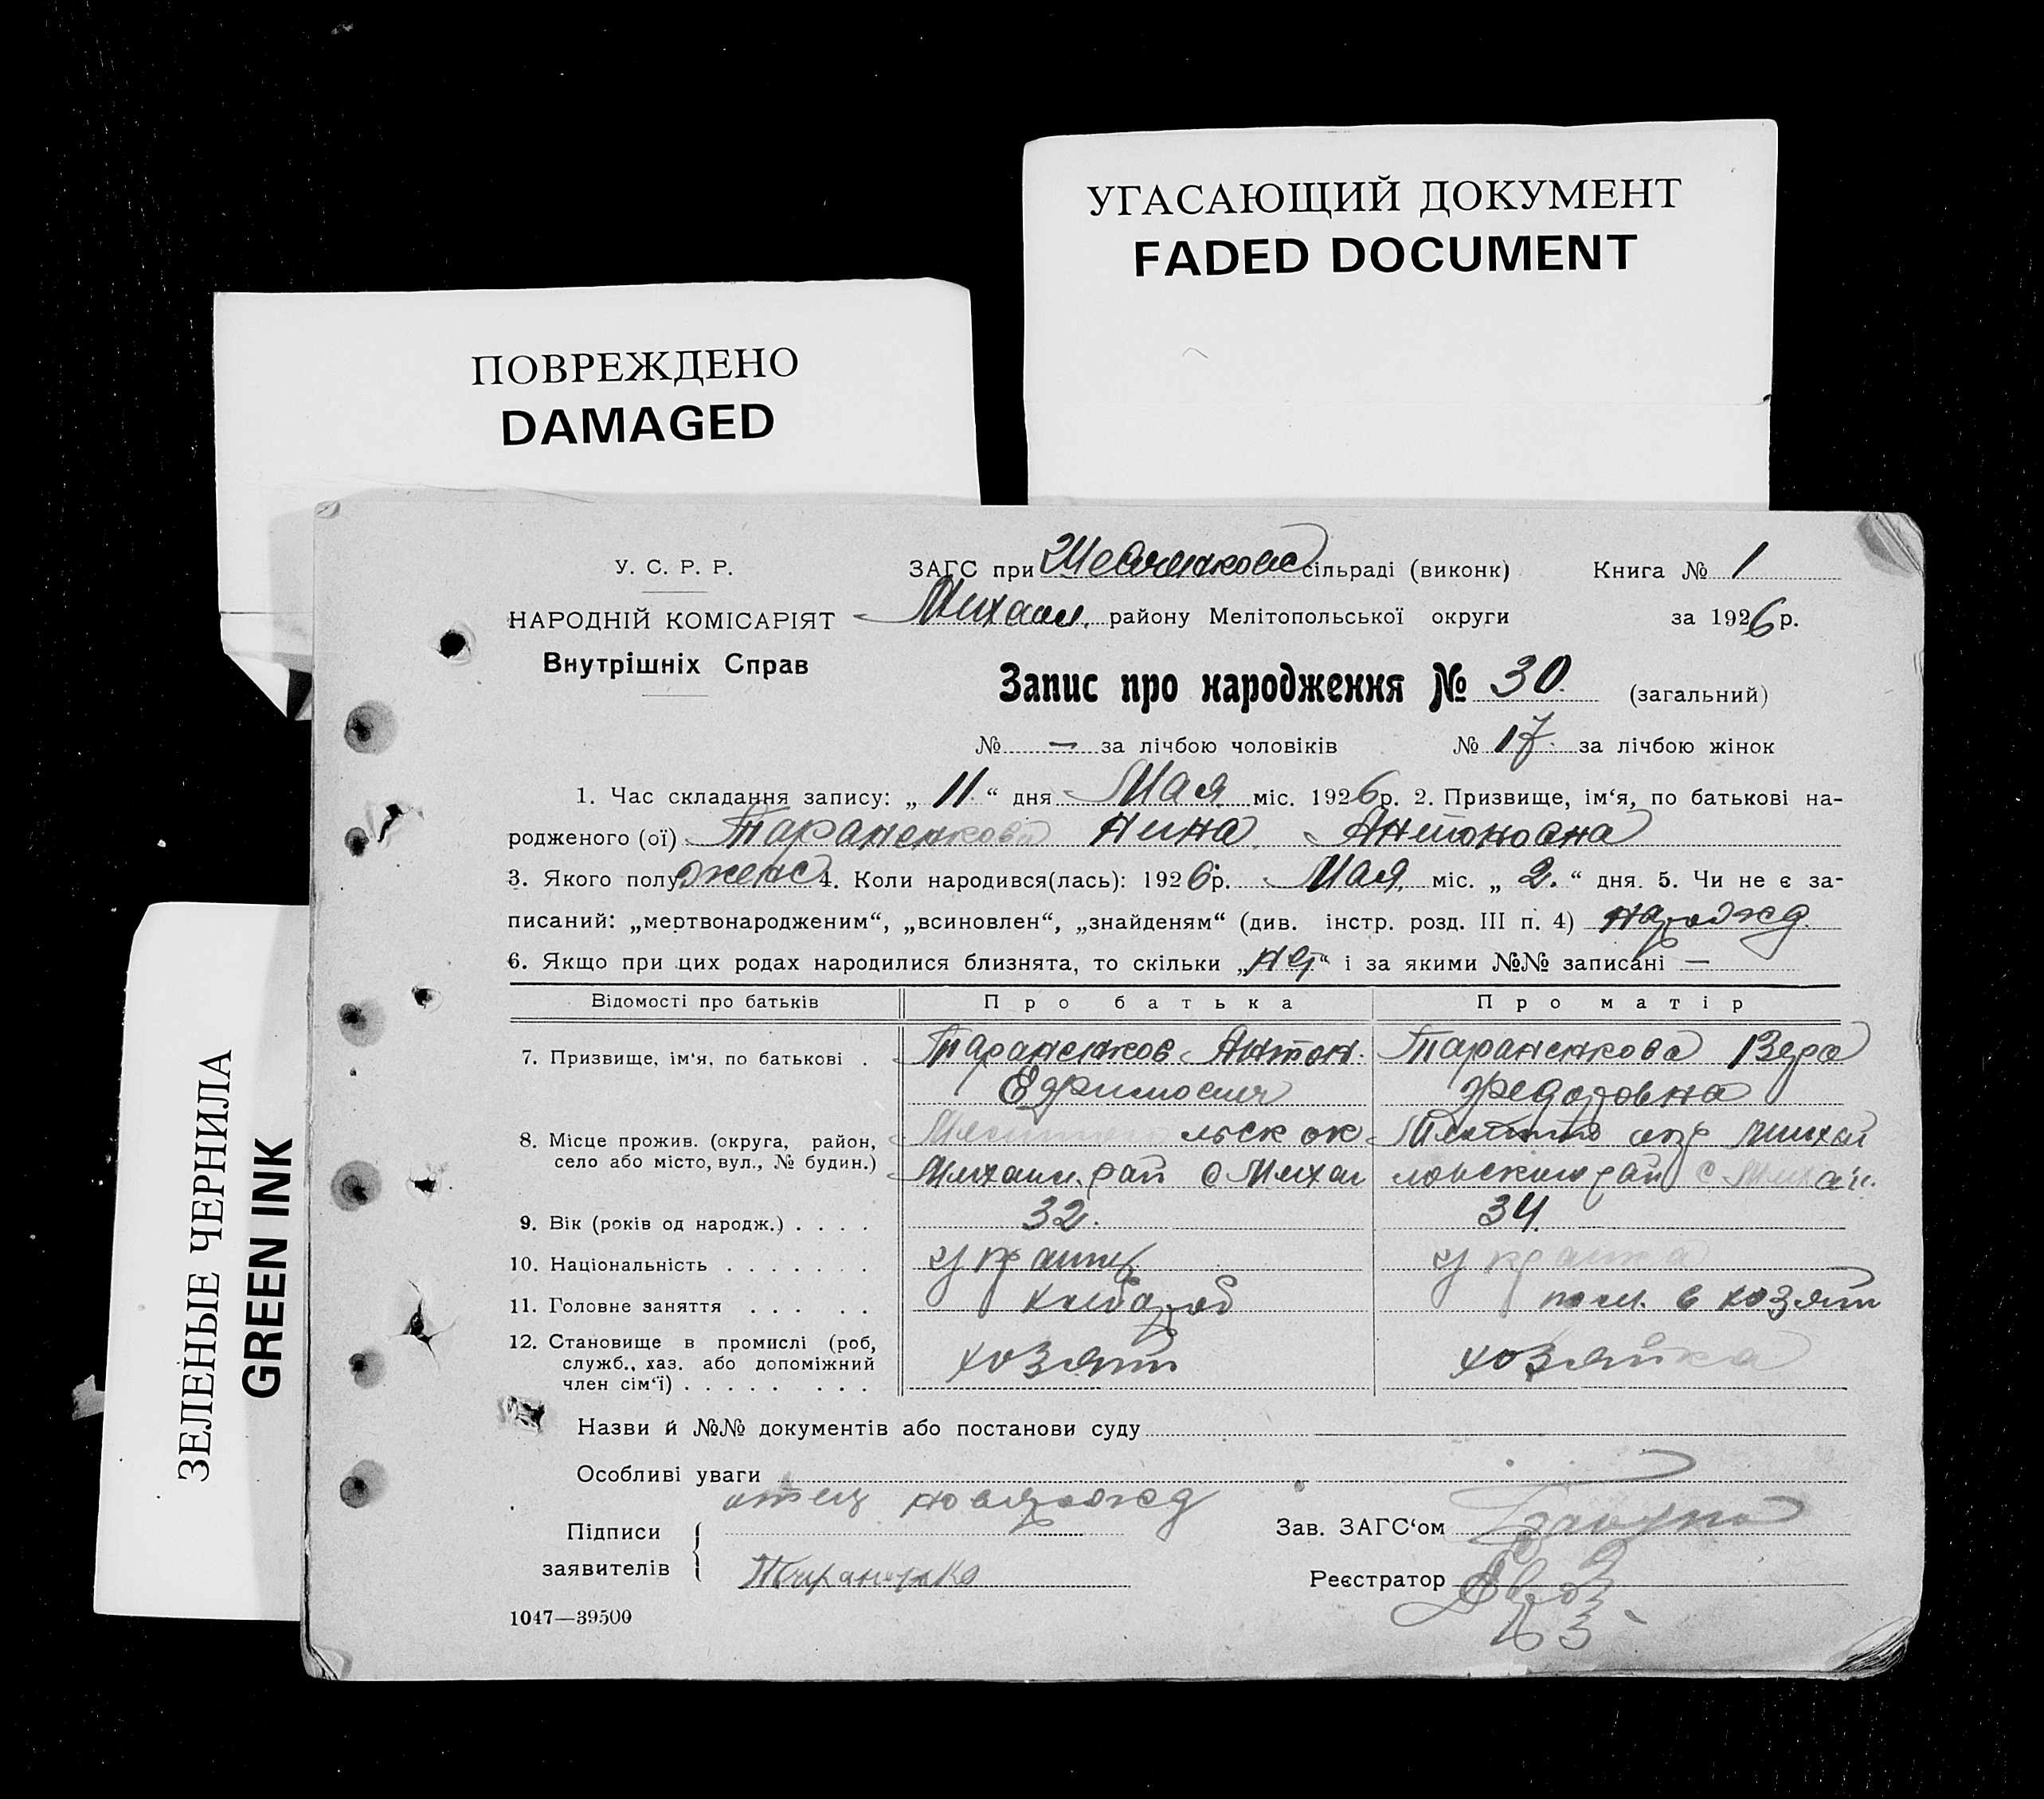 УГАСАЮЩИЙ ДОКУМЕНТ
FADED DOCUMENT
ПОВРЕЖДЕНО
DAMAGED
ЗЕЛЕНЫЕ ЧЕРНИЛА
GREEN INK
У. С. Р. Р.
НАРОДНІЙ КОМІСАРІЯТ
Внутрішніх Справ
ЗАГС при Шевченковс сільраді (виконк) Книга № 1
Михайл. району Мелітопольської округи за 1926 р.
Запис про народження № 30. (загальний)
№ — за лічбою чоловіків № 17. за лічбою жінок
1. Час складання запису: „ 11 “ дня Мая міс. 1926 р. 2. Призвище, ім‘я, по батькові на-
родженого (ої) Тараненкова Нина Антоновна
3. Якого полу женс 4. Коли народився(лась): 1926 р. Мая міс. „ 2. “ дня. 5. Чи не є за-
писаний: „мертвонародженим“, „всиновлен“, „знайденям“ (див. інстр. розд. III п. 4) нарожд.
6. Якщо при цих родах народилися близнята, то скільки „нет“ і за якими №№ записані —
Відомості про батьків Про батька Про матір
7. Призвище, ім‘я, по батькові . Тараненков Антон. Тараненкова Вера
Ефимович Федоровна
8. Місце прожив. (округа, район, село або місто, вул., № будин.) льск ок Мелитп окр Михай
Михайл. рай с Михай ловский рай с Михай.
9. Вік (років од народж.) . . . . 32. 34.
10. Національність . . . . . . . украинц украинка
11. Головне заняття . . . . . хлебороб пом. в хозяйт
12. Становище в промислі (роб, служб., хаз. або допоміжний член сім‘ї) . . . . . . . . хозяин хозяйка
Назви й №№ документів або постанови суду
Особливі уваги
отец новорожд
Підписи заявителів
Тараненко
Зав. ЗАГС‘ом
Реєстратор
1047—39500